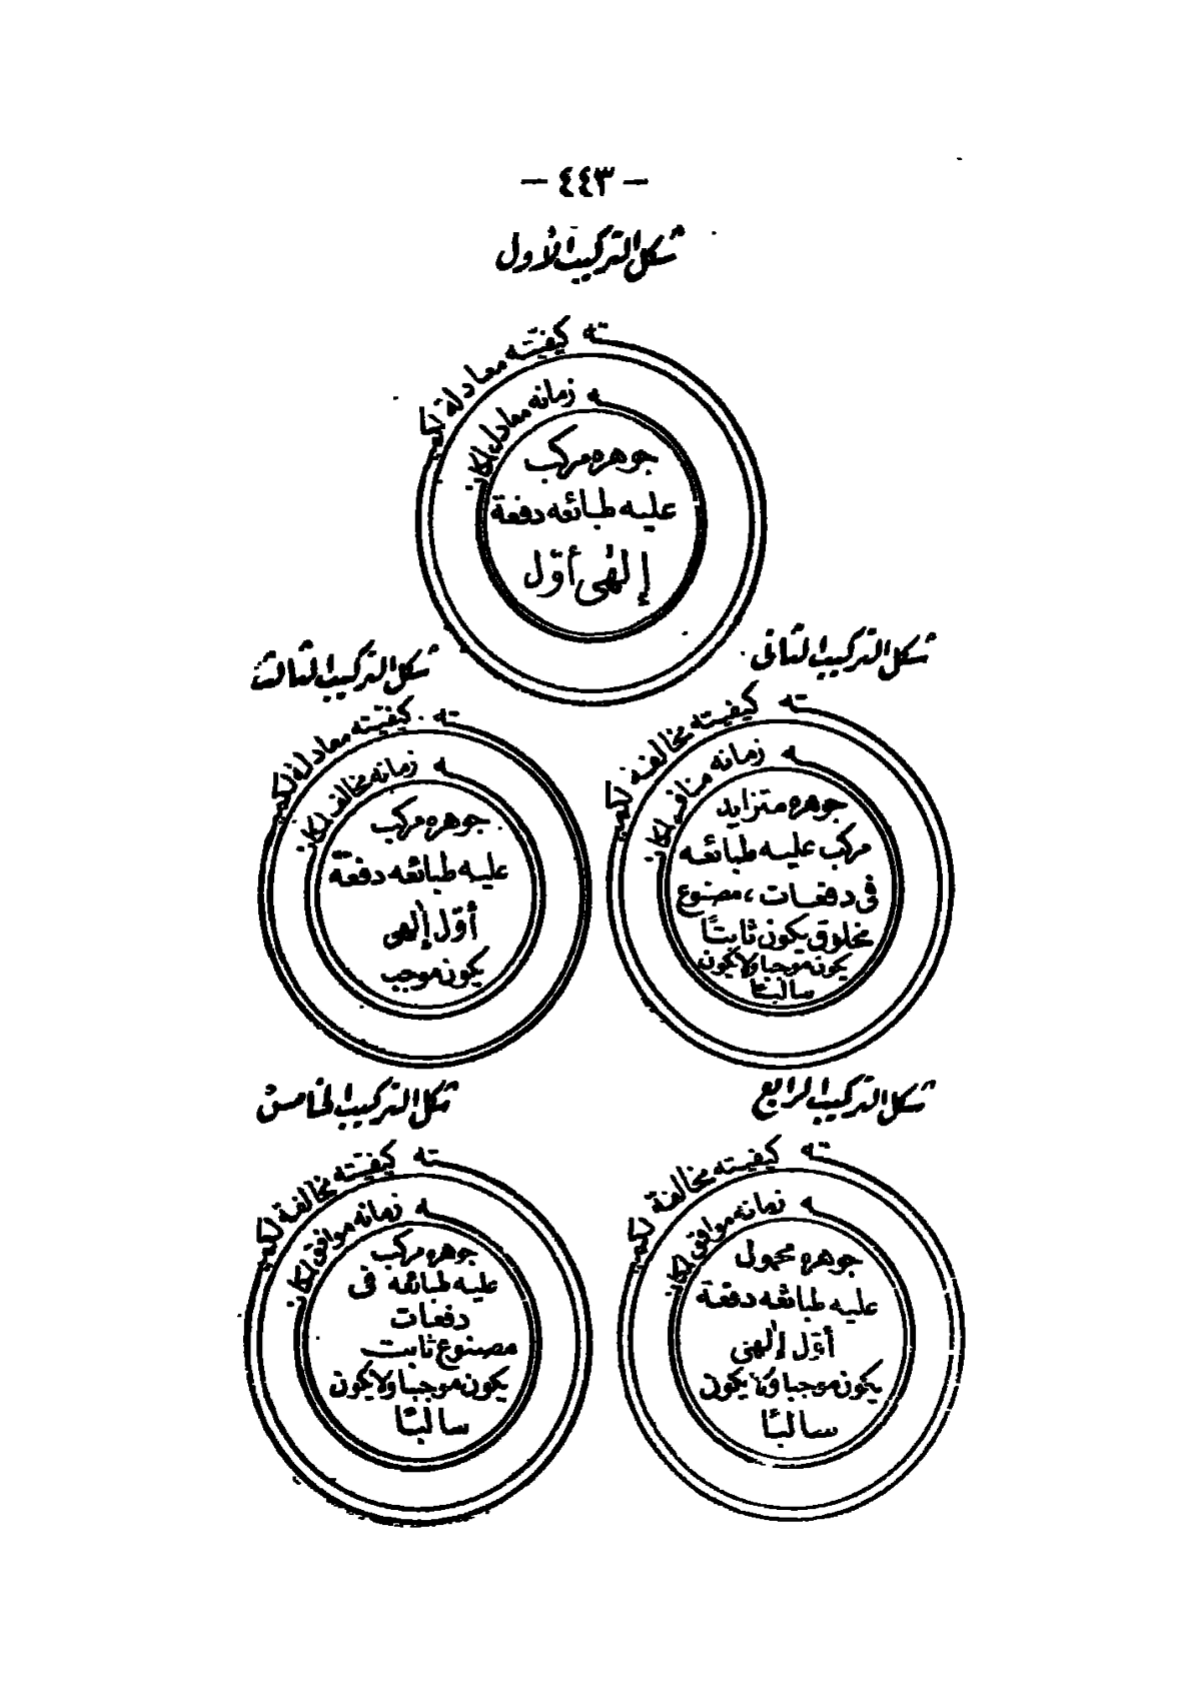 — ٤٤٣ —
شكل التركيب الأول
كيفيته معادلة لكميته
زمانه معادل لمكانه
جوهره مركب
عليه طبائعه دفعة
إلهى أوّل
شكل التركيب الثانى
كيفيته مخالفة لكميته
زمانه مناف لمكانه
جوهره متزايد
مركب عليه طبائعه
فى دفعات، مصنوع
مخلوق يكون ثابتًا
يكون موجبا ولا يكون
سالبًا
شكل التركيب الثالث
كيفيته معادلة لكميته
زمانه مخالف لمكانه
جوهره مركب
عليه طبائعه دفعة
أوّل إلهى
يكون موجب
شكل التركيب الرابع
كيفيته مخالفة لكميته
زمانه موافق لمكانه
جوهره محمول
عليه طبائعه دفعة
أوّل إلهى
يكون موجبا ولا يكون
سالبًا
شكل التركيب الخامس
كيفيته مخالفة لكميته
زمانه موافق لمكانه
جوهره مركب
عليه طبائعه فى
دفعات
مصنوع ثابت
يكون موجبا ولا يكون
سالبًا